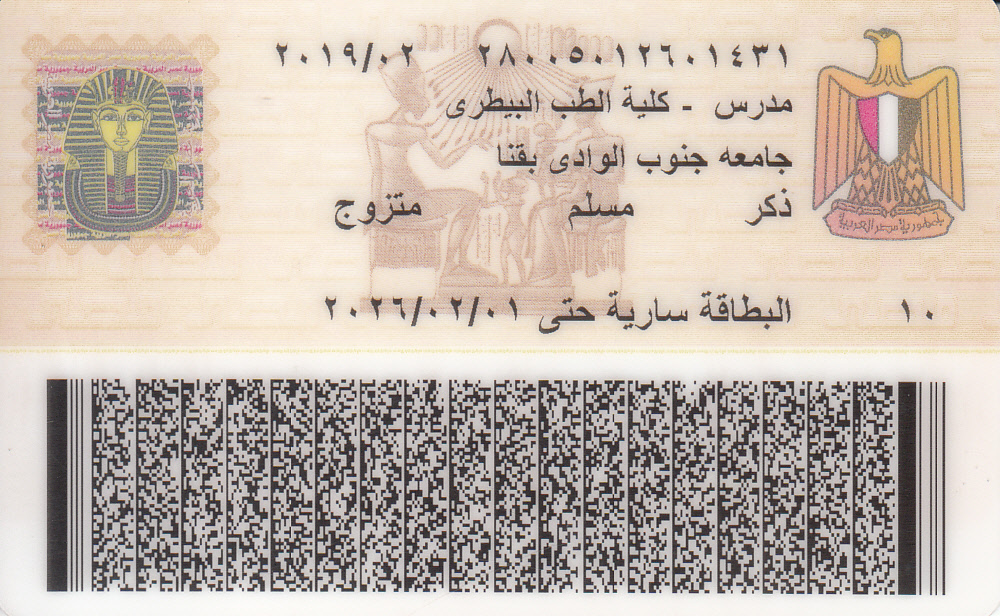 ٢٨٠٠٥٠١٢٦٠١٤٣١ ٢٠١٩/٠٢
مدرس - كلية الطب البيطرى
جامعه جنوب الوادى بقنا
ذكر مسلم متزوج
جمهورية مصر العربية
١٠ البطاقة سارية حتى ٢٠٢٦/٠٢/٠١